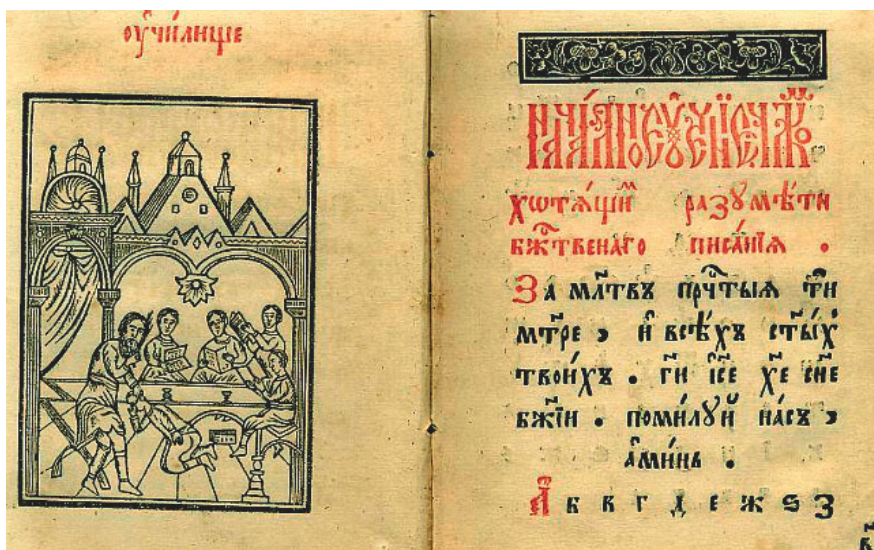 оу҆чи́лище
Нача́лное оу҆че́нїе человѣ́кѡмъ
хотѧ́щим разꙋмѣ́ти
бж҃твенаго писа́нїѧ .
За мл҃твъ прⷱ҇тыѧ ти
мт҃ре , и҆ всѣ́хъ ст҃ы́хъ
твои́хъ . гⷭ҇и і҆се хе҃ сн҃е
бж҃їи . поми́лꙋй на́съ ,
а҆ми́нь .
А б в г д е ж ѕ з